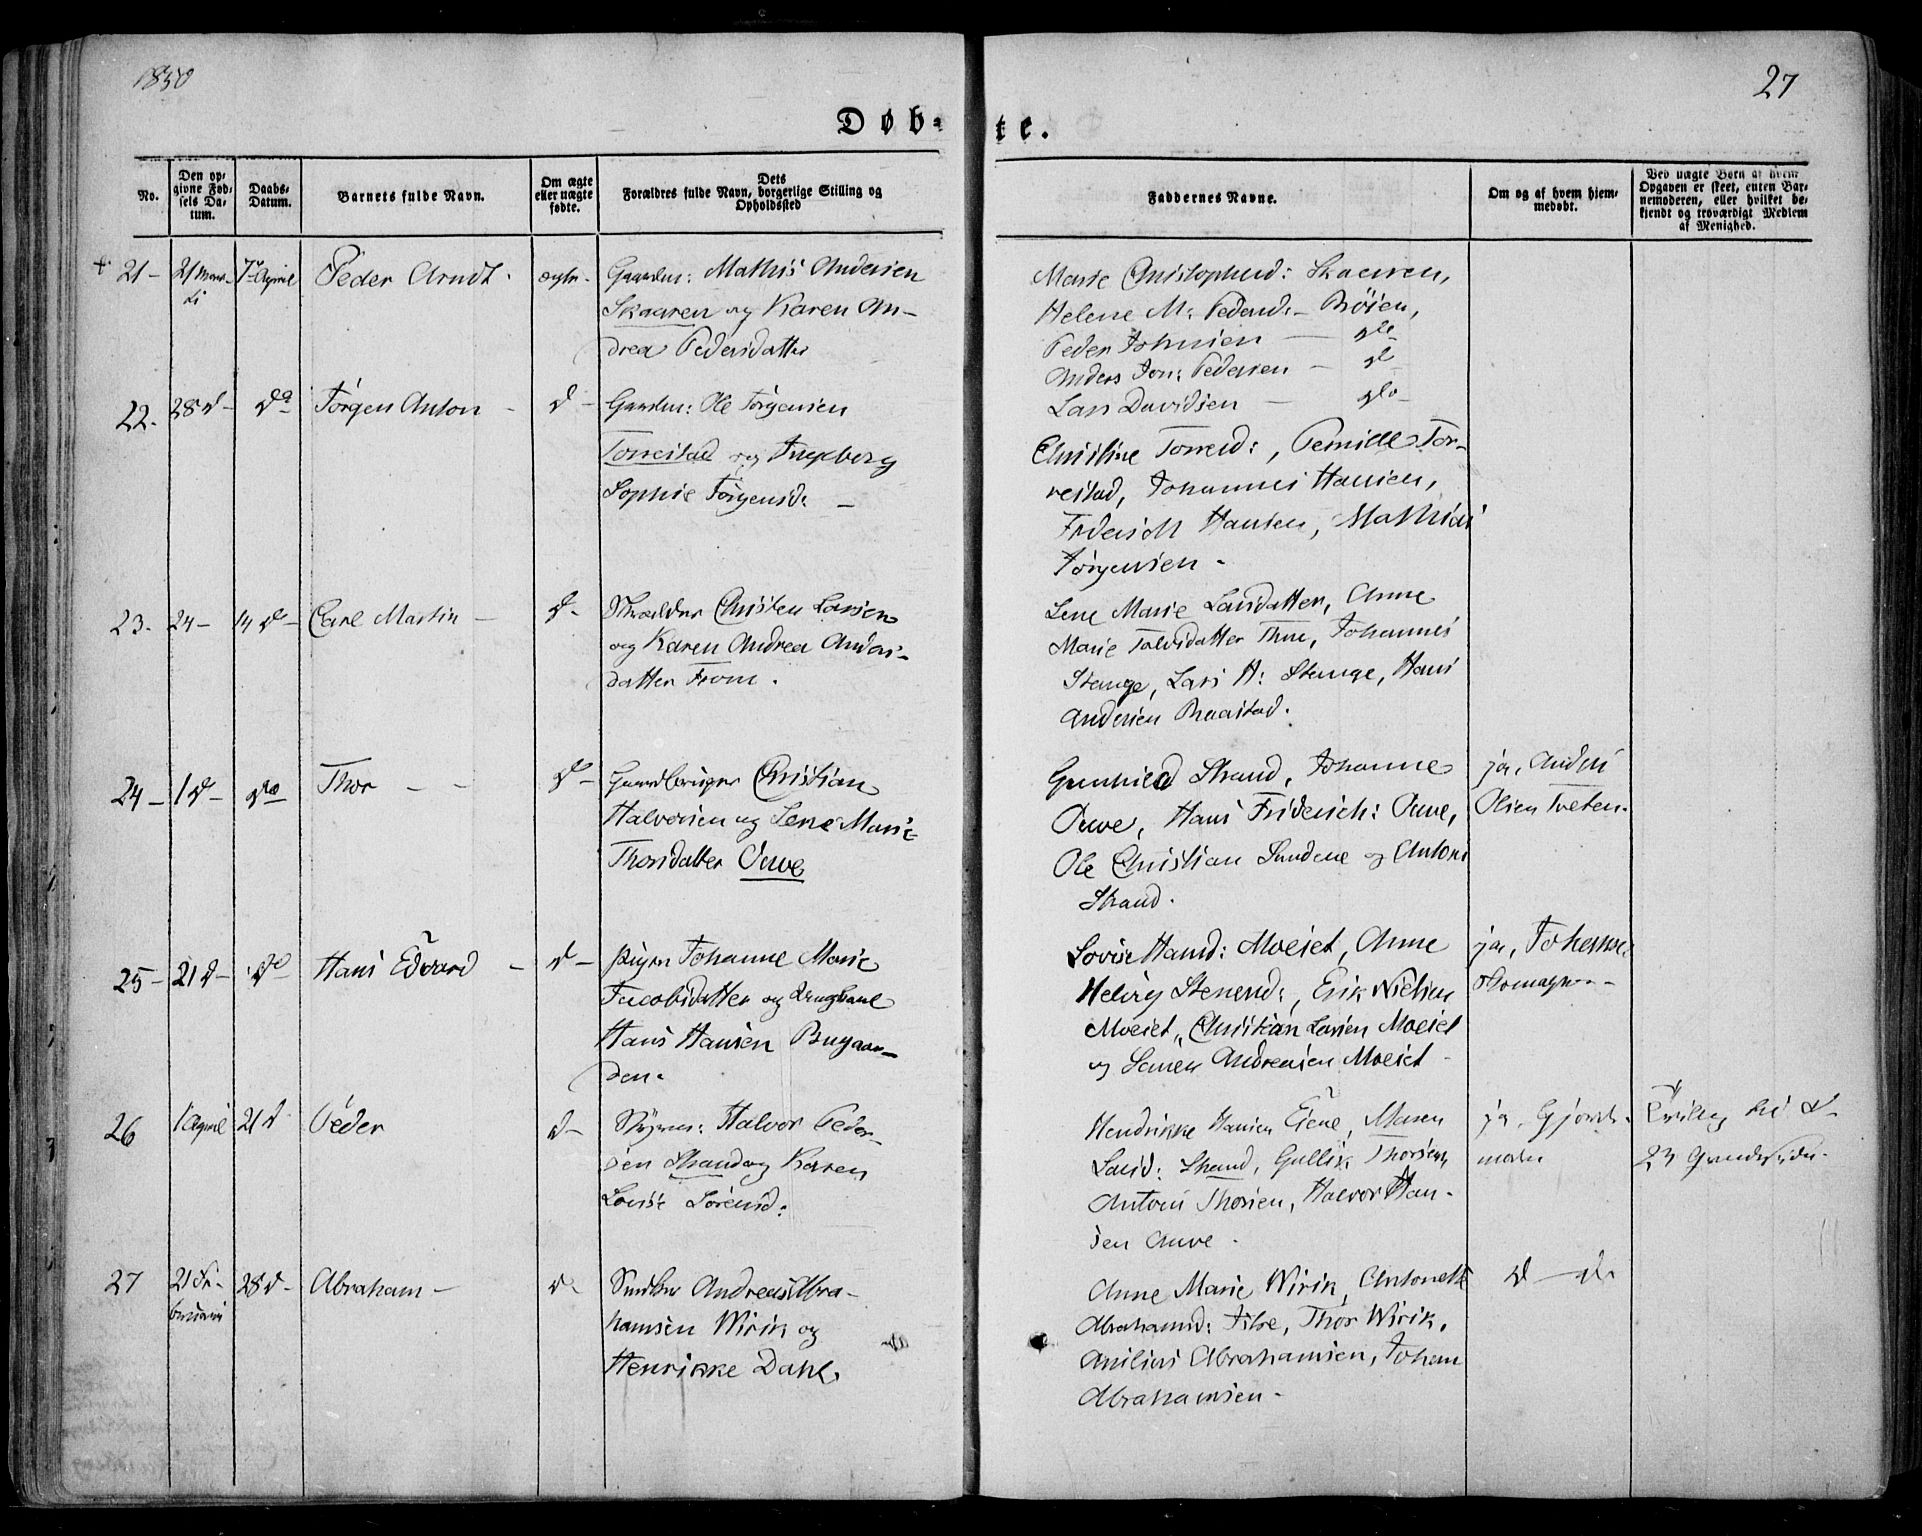 1850
27
Døb-
te.
No.
Den op-
givne Fød-
sels Da-
tum.
Daabs-
Datum.
Barnets fulde Navn.
Om ægte
eller uægte
fødte.
Dets
Forældres fulde Navn, borgerlige Stilling og
Opholdssted
Faddernes Navne.
Om og af hvem hjem-
medøbt.
Ved uægte Børn af hvem
Opgaven er skeet, enten Bar-
nemoderen, eller hvilket be-
kjendt og troværdigt Medlem
af Menighed.
21-
7de April
Peder Arndt.
ægte-
Gaardm: Mathis Andersen
Skaaren og Karen An-
drea Pedersdatter
Marie Christophersd: Skaaren,
Helene M: Pedersd: Brøien,
Peder Johnsen
Anders Jon: Pedersen
Lars Davidsen
22.
28 d-
do
Jörgen Anton
d-
Gaardm: Ole Jörgensen
Torrestad og Ingeborg
Sophie Jörgensd:
Christine Torresd:, Pernille Tor-
restad, Johannes Hansen,
Fridersch Hansen, Mathias
Jörgensen -
23.
24-
14 do-
Carl Martin
d-
Skrædder Christen Larsen
og Karen Andrea Anders-
datter From.
Lene Marie Larsdatter, Anne
Marie Tolvsdatter Thue, Johannes
Stenge, Lars H: Stenge, Hans
Andersen Braastad.
24-
1 d-
do
Thor
d-
Gaardbruger Christian
Halvorsen og Lene Marie
Thorsdatter Ouve
Gunhild Strand, Johanne
Ouve, Hans Friderich: Ouve,
Ole Christian Sundene og Antoni
Strand.
ja, Anders
Olsen Tveten.
25-
21 d-
do
Hans Edvard
d-
Pigen Johanne Marie
Jacobsdatter og Ungkarl
Hans Hansen Brygaar-
den.
Lovise Hansd: Moeiet, Anne
Helvig Stenersd:, Erik Nielsen
Moeiet, Christian Larsen Moeiet
og Andreasen Moeiet
ja, Johannes
26
1 April
21 d
Peder
d-
Halvor Peder-
sen Strand og Karen
Louise Sörensd:
Hendrikke Hansen Eiene, Maren
Larsd: Strand, Gullik Thorsen,
Antoni Thorsen, Halvor Han-
sen Auve -
ja, Gjord-
moder
Tvilling
27
21 Fe-
bruari
28 d-
Abraham -
d-
Smikker Andreas Abra-
hamsen Wirik og
Henrikke Dahl.
Anne Marie Wirik, Antonette
Abrahamsd: , Thor Wirik,
Anilius Abrahamsen, Johan
Abrahamsen -
d- do